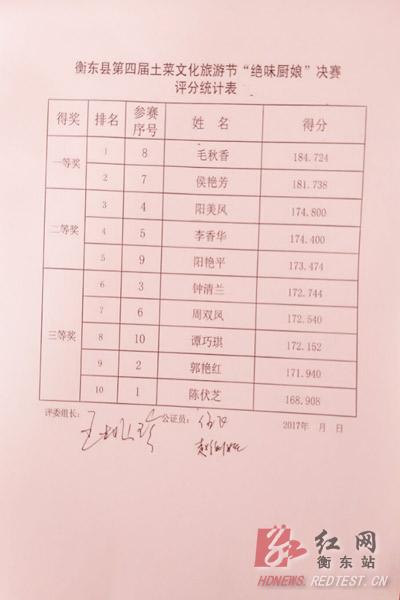 衡东县第四届土菜文化旅游节“绝味厨娘”决赛
评分统计表
得奖 排名 参赛序号 姓名 得分
一等奖 1 8 毛秋香 184.724
2 7 侯艳芳 181.738
二等奖 3 4 阳美凤 174.800
4 5 李香华 174.400
5 9 阳艳平 173.474
三等奖 6 3 钟清兰 172.744
7 6 周双凤 172.540
8 10 谭巧琪 172.152
9 2 郭艳红 171.940
10 1 陈伏芝 168.908
评委组长： 公证员： 2017年 月 日
红网
衡东站
HDNEWS.REDTEST.CN